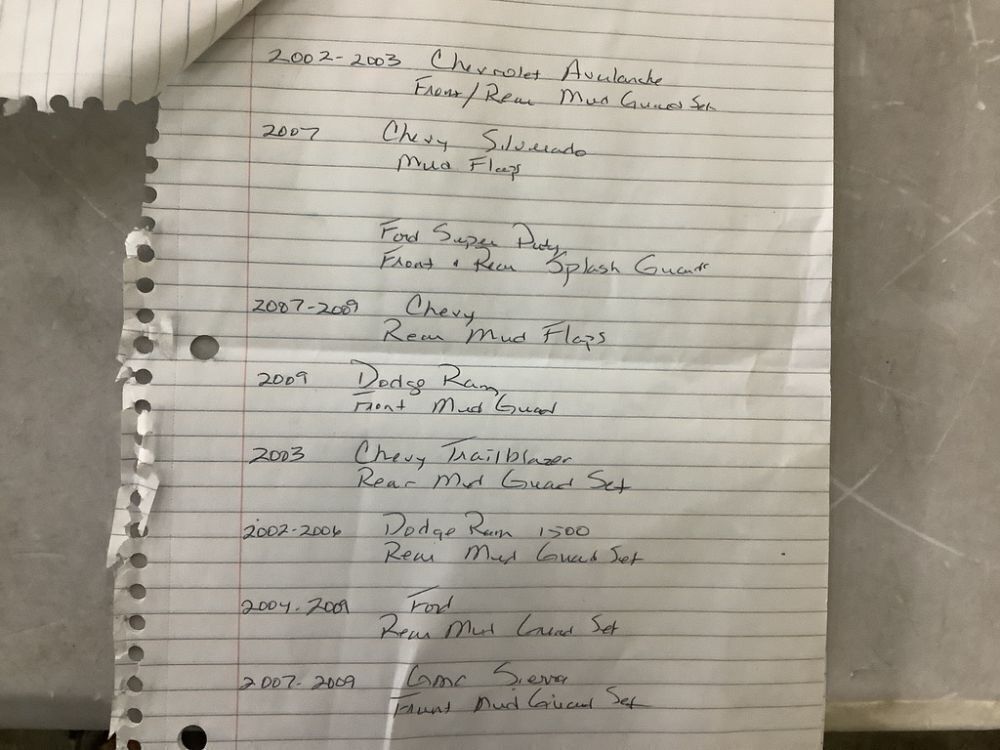 2002-2003 Chevrolet Avalanche
Front/Rear Mud Guard Set
2007 Chevy Silverado
Mud Flaps
Ford Super Duty
Front & Rear Splash Guard
2007-2009 Chevy
Rear Mud Flaps
2009 Dodge Ram
Front Mud Guard
2003 Chevy Trailblazer
Rear Mud Guard Set
2002-2006 Dodge Ram 1500
Rear Mud Guard Set
2004-2009 Ford
Rear Mud Guard Set
2007-2009 GMC Sierra
Front Mud Guard Set